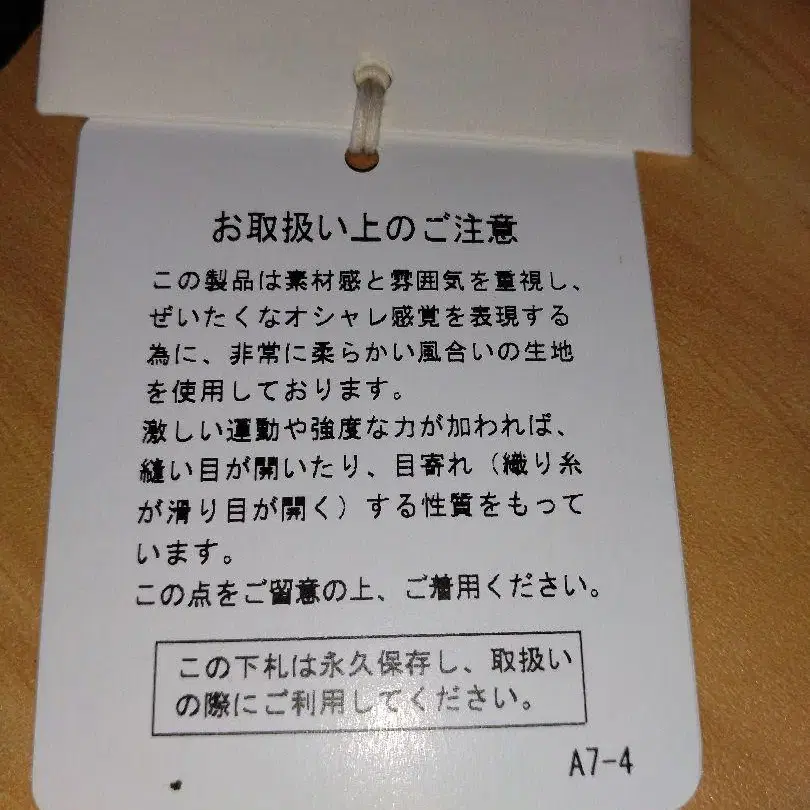 お取扱い上のご注意
この製品は素材感と雰囲気を重視し、
ぜいたくなオシャレ感覚を表現する
為に、非常に柔らかい風合いの生地
を使用しております。
激しい運動や強度な力が加われば、
縫い目が開いたり、目寄れ（織り糸
が滑り目が開く）する性質をもって
います。
この点をご留意の上、ご着用ください。
この下札は永久保存し、取扱い
の際にご利用してください。
A7-4